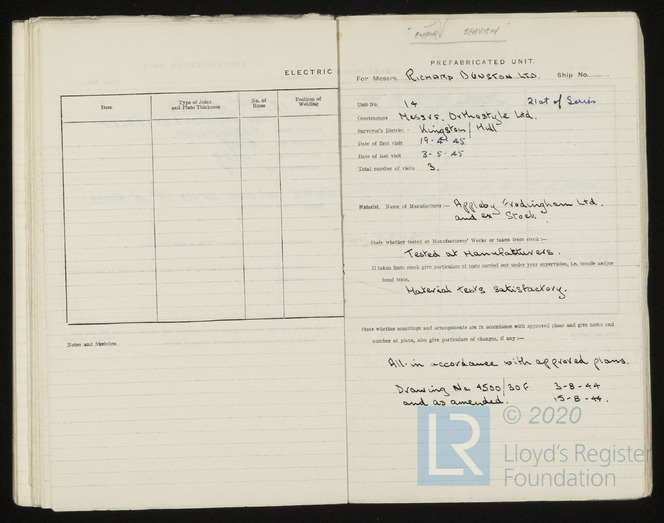 ELECTRIC
Item
Type of Joint and Plate Thickness
No. of Runs
Position of Welding
Notes and Sketches
"EMPORY SEAVIEW"
PREFABRICATED UNIT.
For Messrs. RICHARD DUNSTON LTD. Ship No.
Unit No. 14 21st of Series
Constructors Messrs. Orthostyle Ltd.
Surveyor's District Kingston/Hull
Date of first visit 19-4-45
Date of last visit 3-5-45
Total number of visits 3.
Material. Name of Manufacturer:— Appleby Frodingham Ltd.
and ex Stock.
State whether tested at Manufacturers' Works or taken from stock:—
Tested at Manufatturers.
If taken from stock give particulars of tests carried out under your supervision, i.e. tensile and/or
bend tests.
Material tests satisfactory.
State whether scantlings and arrangements are in accordance with approved plans and give name and
number of plans, also give particulars of changes, if any:—
All in accordance with approved plans.
Drawing No. 4500/30F 3-8-44
and as amended. 15-8-44.
© 2020
LR
Lloyd's Register
Foundation